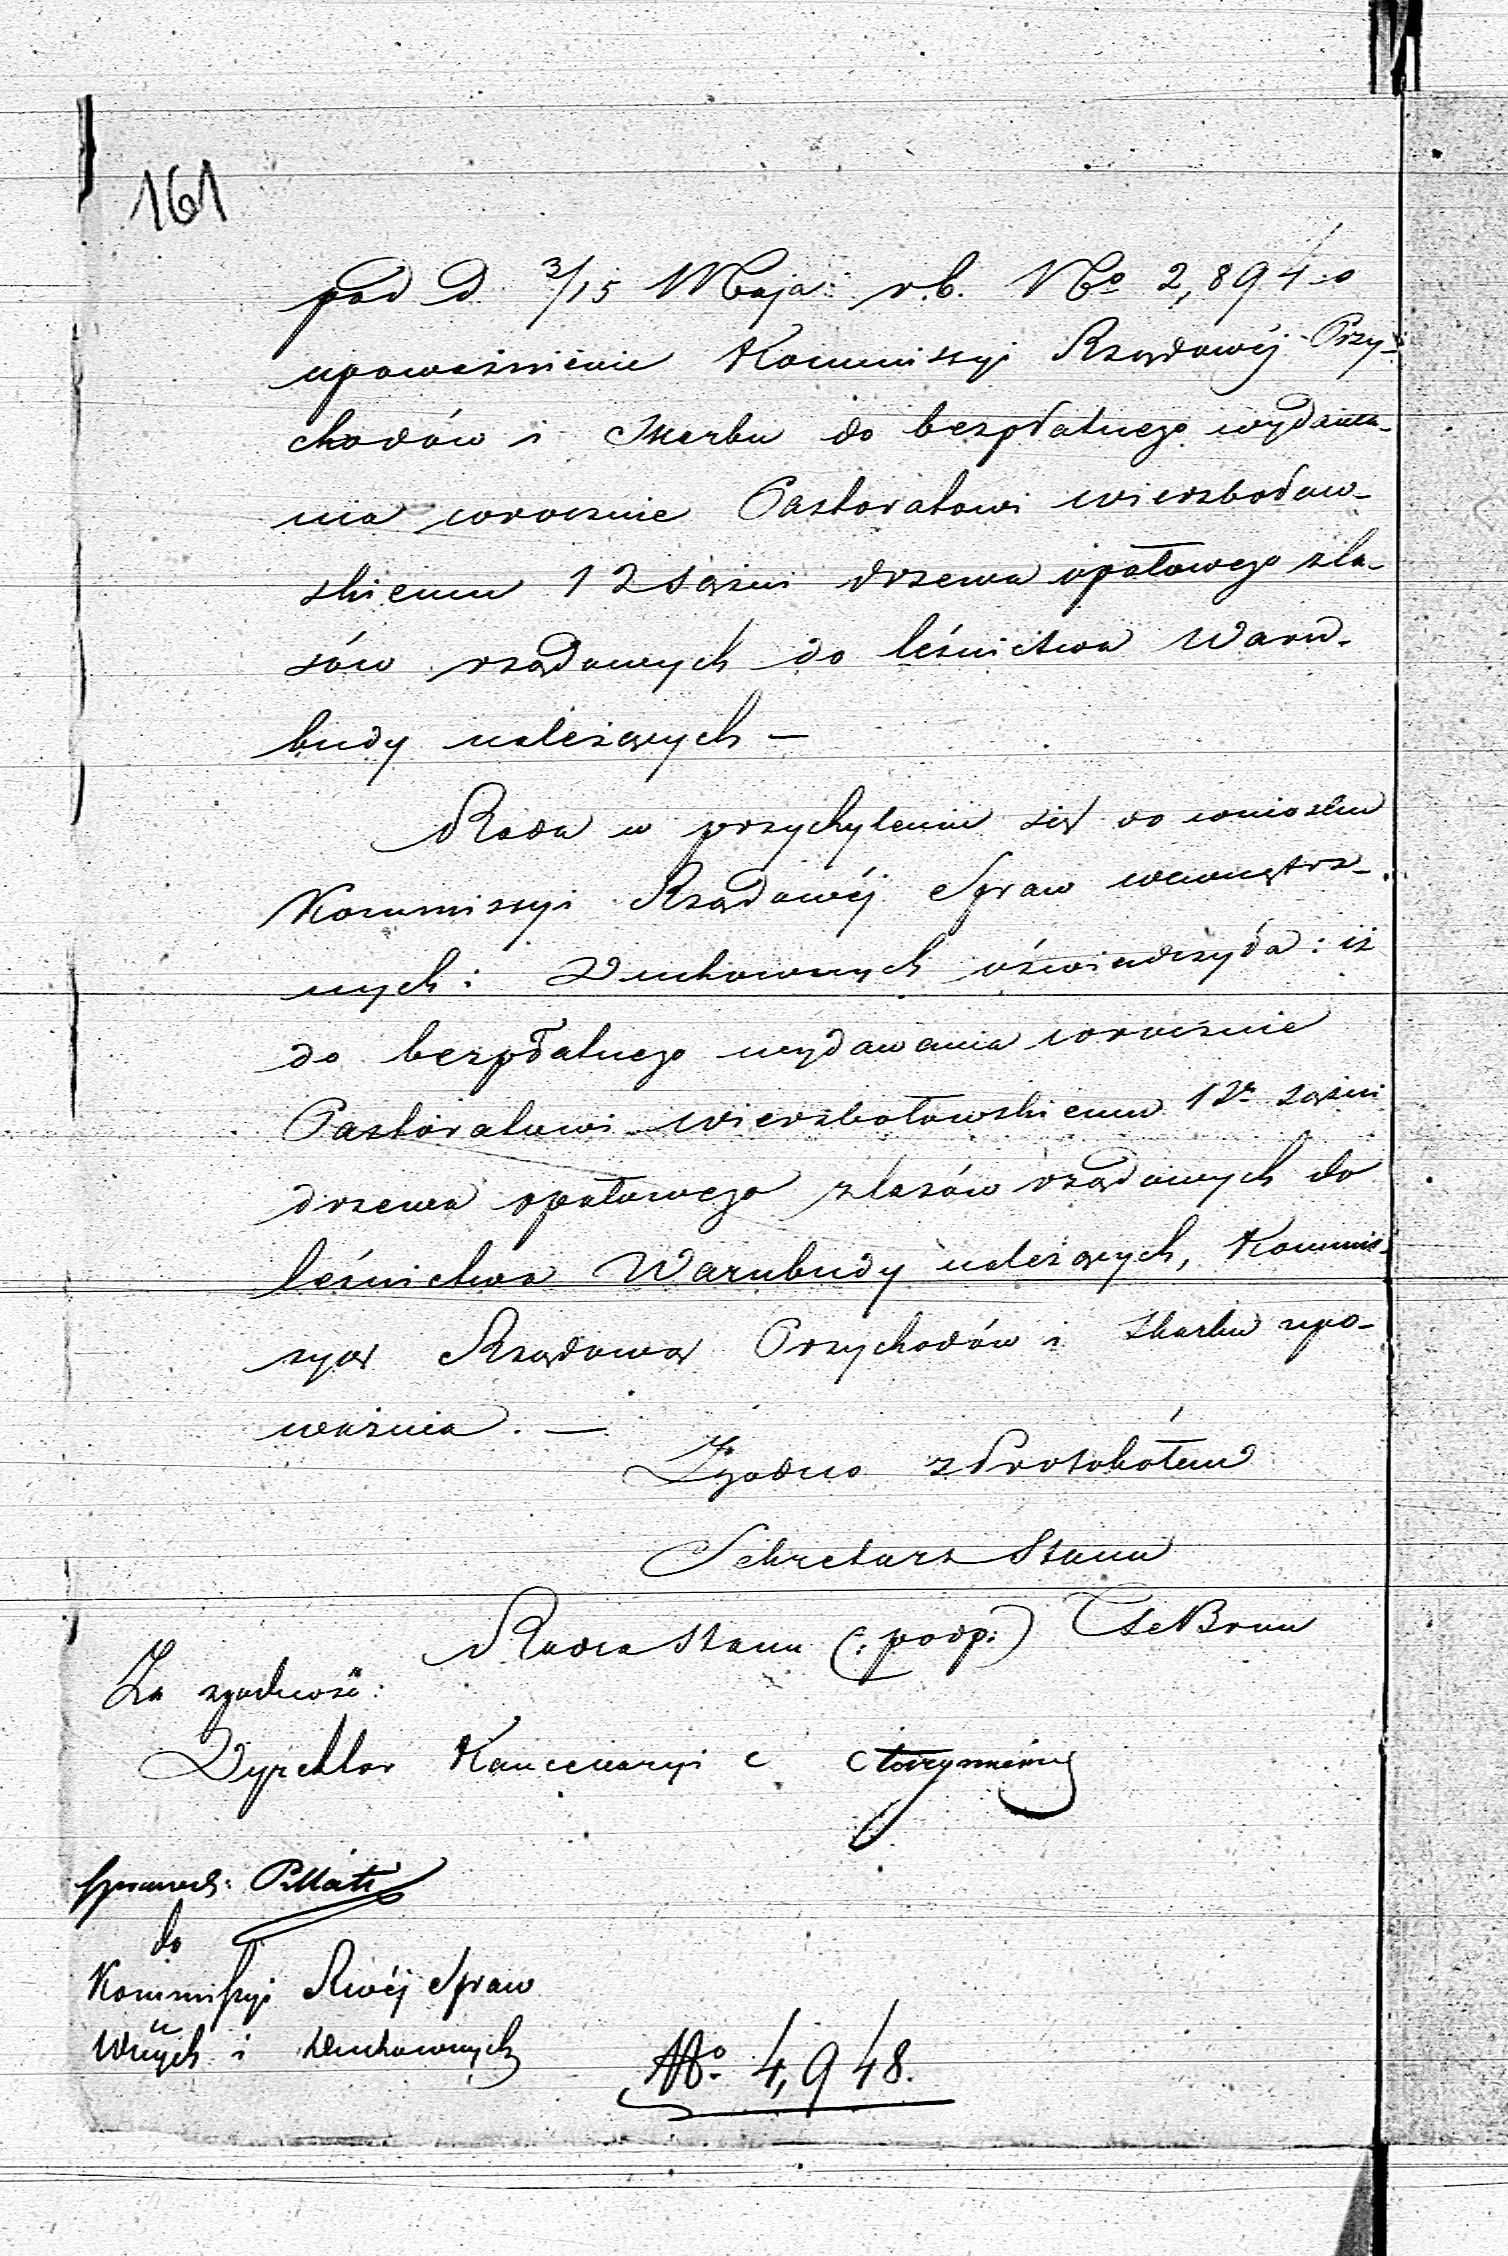 161
pod d. 3/15 Maja r.b. No 2,894 o
upoważnienie Kommissyi Rządowéj Przy-
chodów i Skarbu do bezpłatnego wydawa-
nia corocznie Pastoratowi wierzbołow-
skiemu 12 sążni drzewa opałowego z la-
sów rządowych do leśnictwa Warn-
budy należących —
Rada w przychyleniu się do wniosku
Kommissyi Rządowéj Spraw wewnętrz-
nych i Duchownych oświadczyła: iż
do bezpłatnego wydawania corocznie
Pastoratowi wierzbołowskiemu 12 sążni
drzewa opałowego z lasów rządowych do
leśnictwa Warnbudy należących, Kommis-
syą Rządową Przychodów i Skarbu upo-
ważnia. —
Zgodno z Protokółem
Sekretarz Stanu
Radca Stanu (: podp:) LeBrun
Za zgodność:
Dyrektor Kancellaryi
do
Kommissyi Rwéj Spraw
Wnych i Duchownych
No. 4,948.